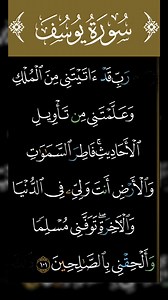 سُورَةُ يُوسُفَ
رَبِّ قَدۡ ءَاتَيۡتَنِي مِنَ ٱلۡمُلۡكِ
وَعَلَّمۡتَنِي مِن تَأۡوِيلِ
ٱلۡأَحَادِيثِۚ فَاطِرَ ٱلسَّمَٰوَٰتِ
وَٱلۡأَرۡضِ أَنتَ وَلِيِّۦ فِي ٱلدُّنۡيَا
وَٱلۡأٓخِرَةِۖ تَوَفَّنِي مُسۡلِمٗا
وَأَلۡحِقۡنِي بِٱلصَّٰلِحِينَ ١٠١